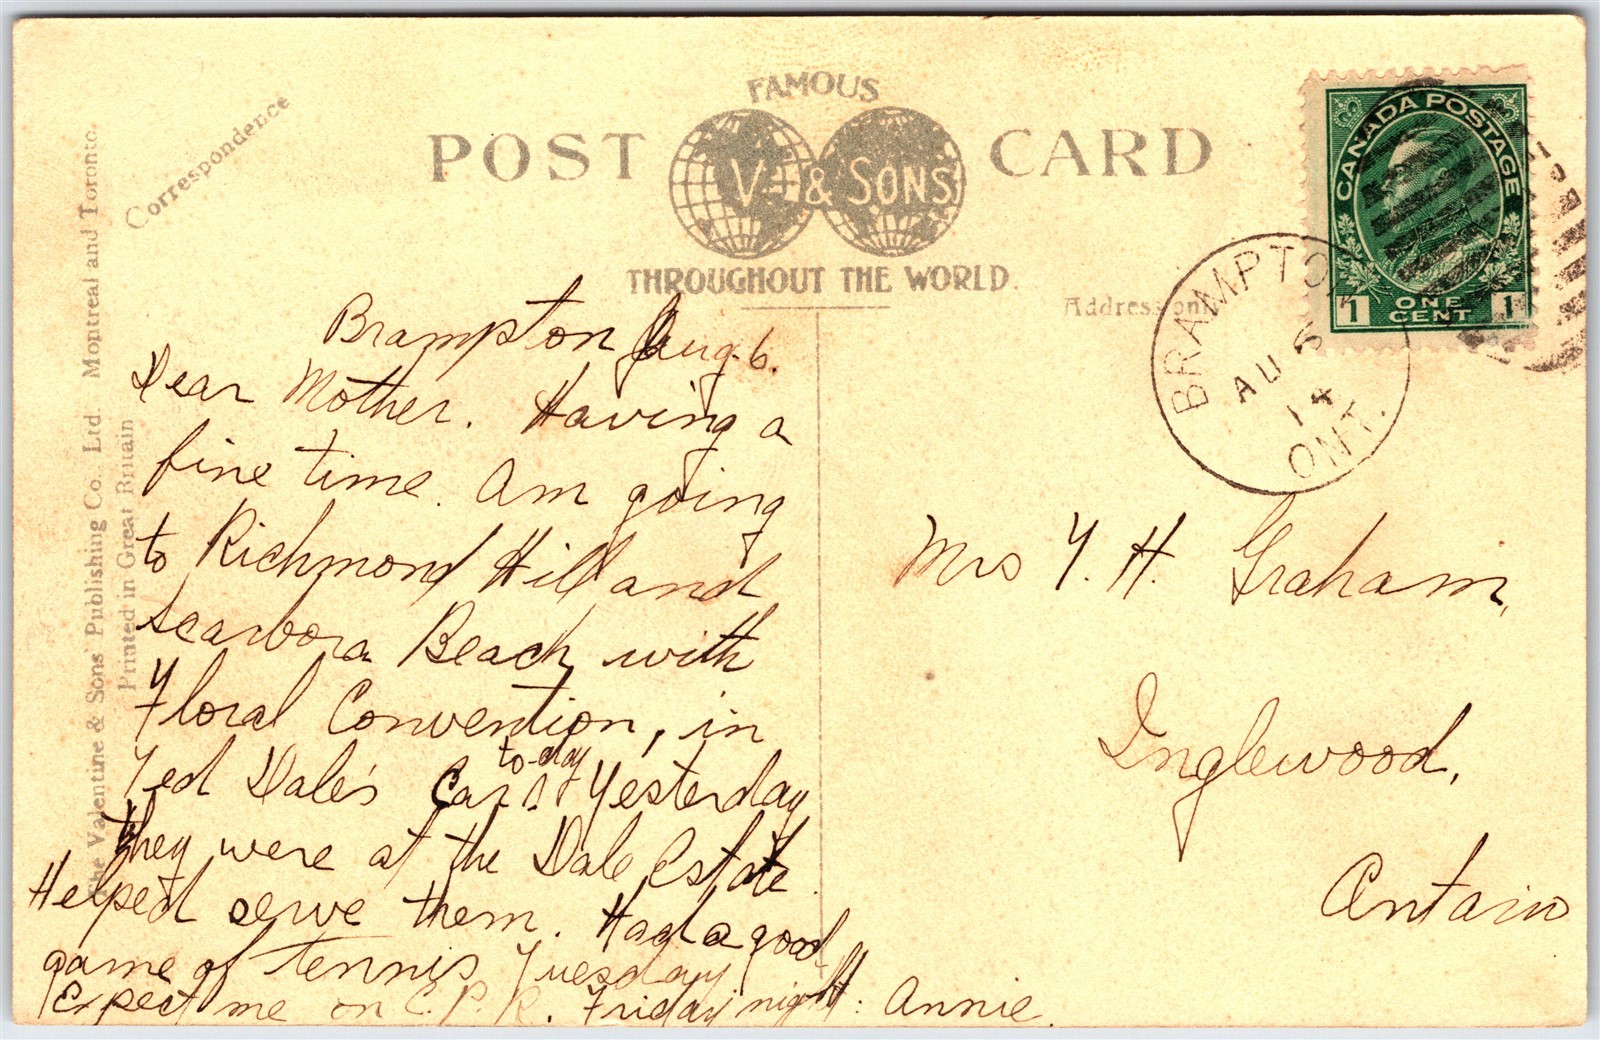 Correspondence
FAMOUS
POST CARD
V. & SONS
THROUGHOUT THE WORLD.
Address only
The Valentine & Sons' Publishing Co., Ltd. Montreal and Toronto.
Printed in Great Britain
CANADA POSTAGE
1 ONE CENT 1
BRAMPTON
AU 6
14
ONT.
Brampton Aug. 6.
Dear Mother. Having a
fine time. Am going
to Richmond Hill and
Scarboro Beach with
Floral Convention, in
Ted Dale's Car to-day. Yesterday
they were at the Dale Estate.
Helped serve them. Had a good
game of tennis Tuesday
Expect me on C.P.R. Friday night: Annie.
Mrs Y. H. Graham,
Inglewood,
Ontario